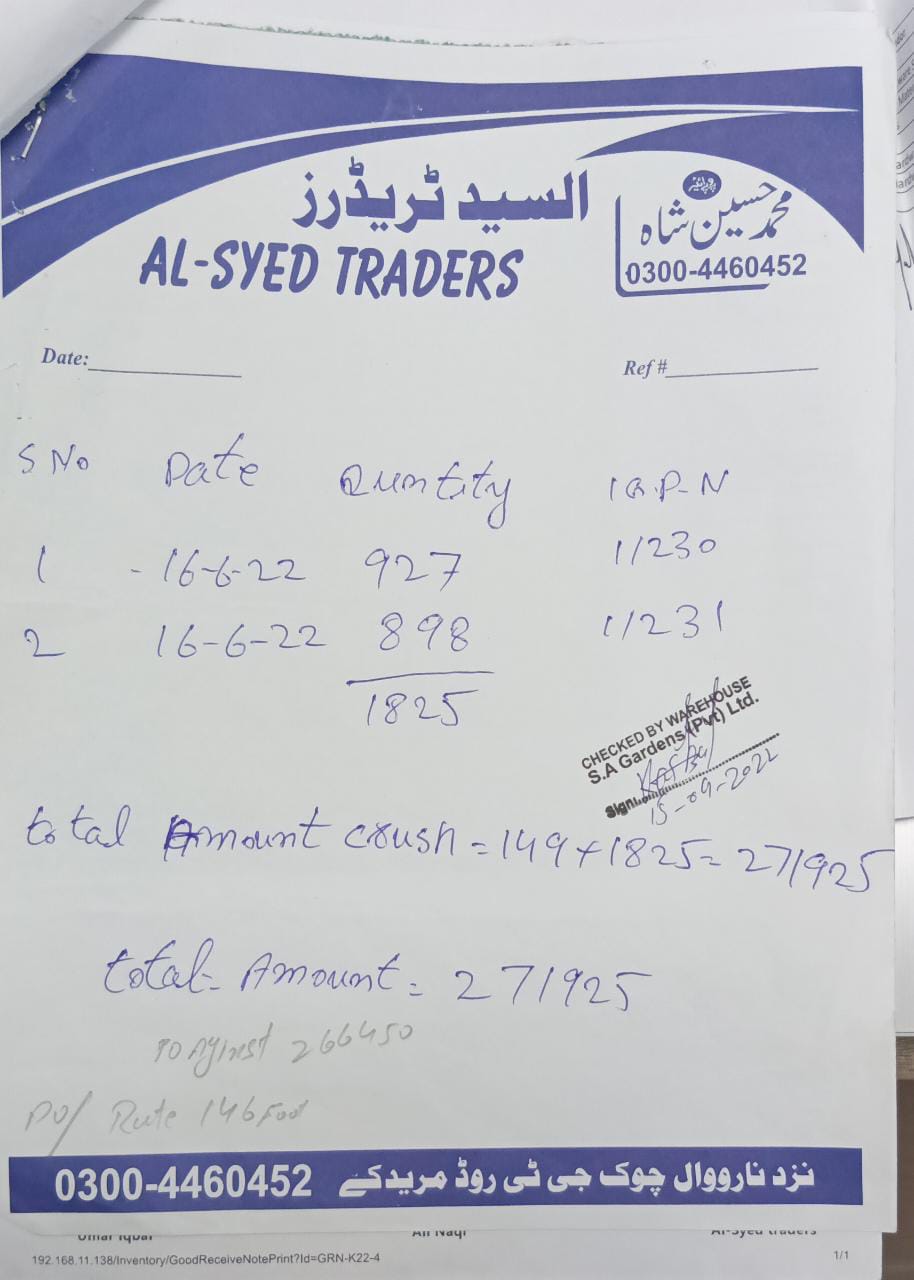 السید ٹریڈرز
AL-SYED TRADERS
پروپرائیٹر
محمد حسین شاہ
0300-4460452
Date:
Ref #
S No Date Quntity I G.P-N
1 - 16-6-22 927 1/230
2 16-6-22 898 1/231
1825
CHECKED BY WAREHOUSE
S.A Gardens (Pvt) Ltd.
Sign:
15-09-2022
total Amount crush = 149 + 1825 = 271925
total- Amount = 271925
PO Aginst 266450
PO/ Rute 146 Foot
0300-4460452 نزد نارووال چوک جی ٹی روڈ مریدکے
Umar Iqbal Ali Naqi Al-Syed traders
192.168.11.138/Inventory/GoodReceiveNotePrint?Id=GRN-K22-4 1/1